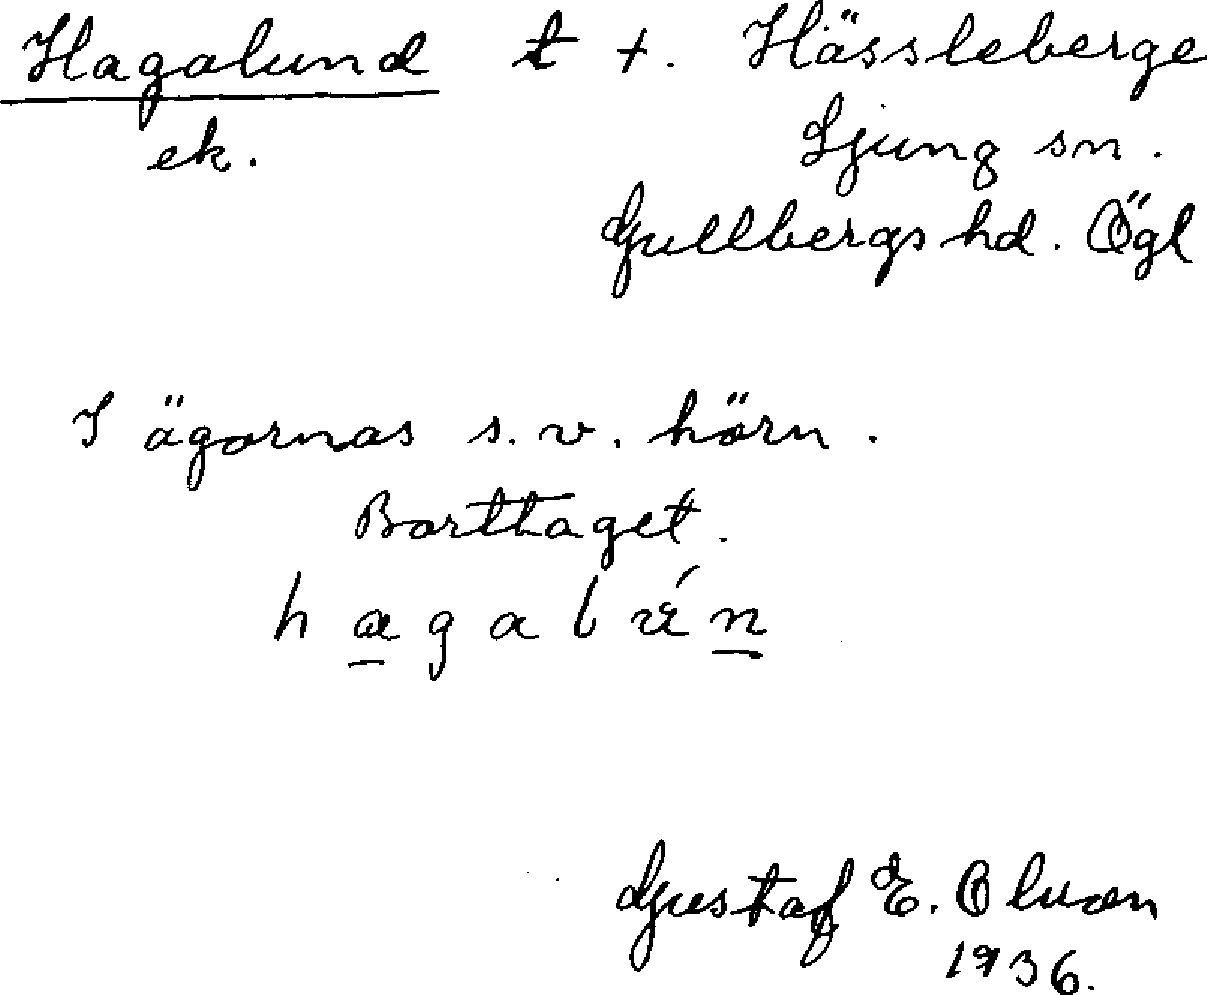 Hagalund t +. Hässleberge
ek. Ljung sn.
Gullbergs hd. Ögl
I ägornas s.v. hörn.
Borttaget.
Gustaf E. Olvon
1936.